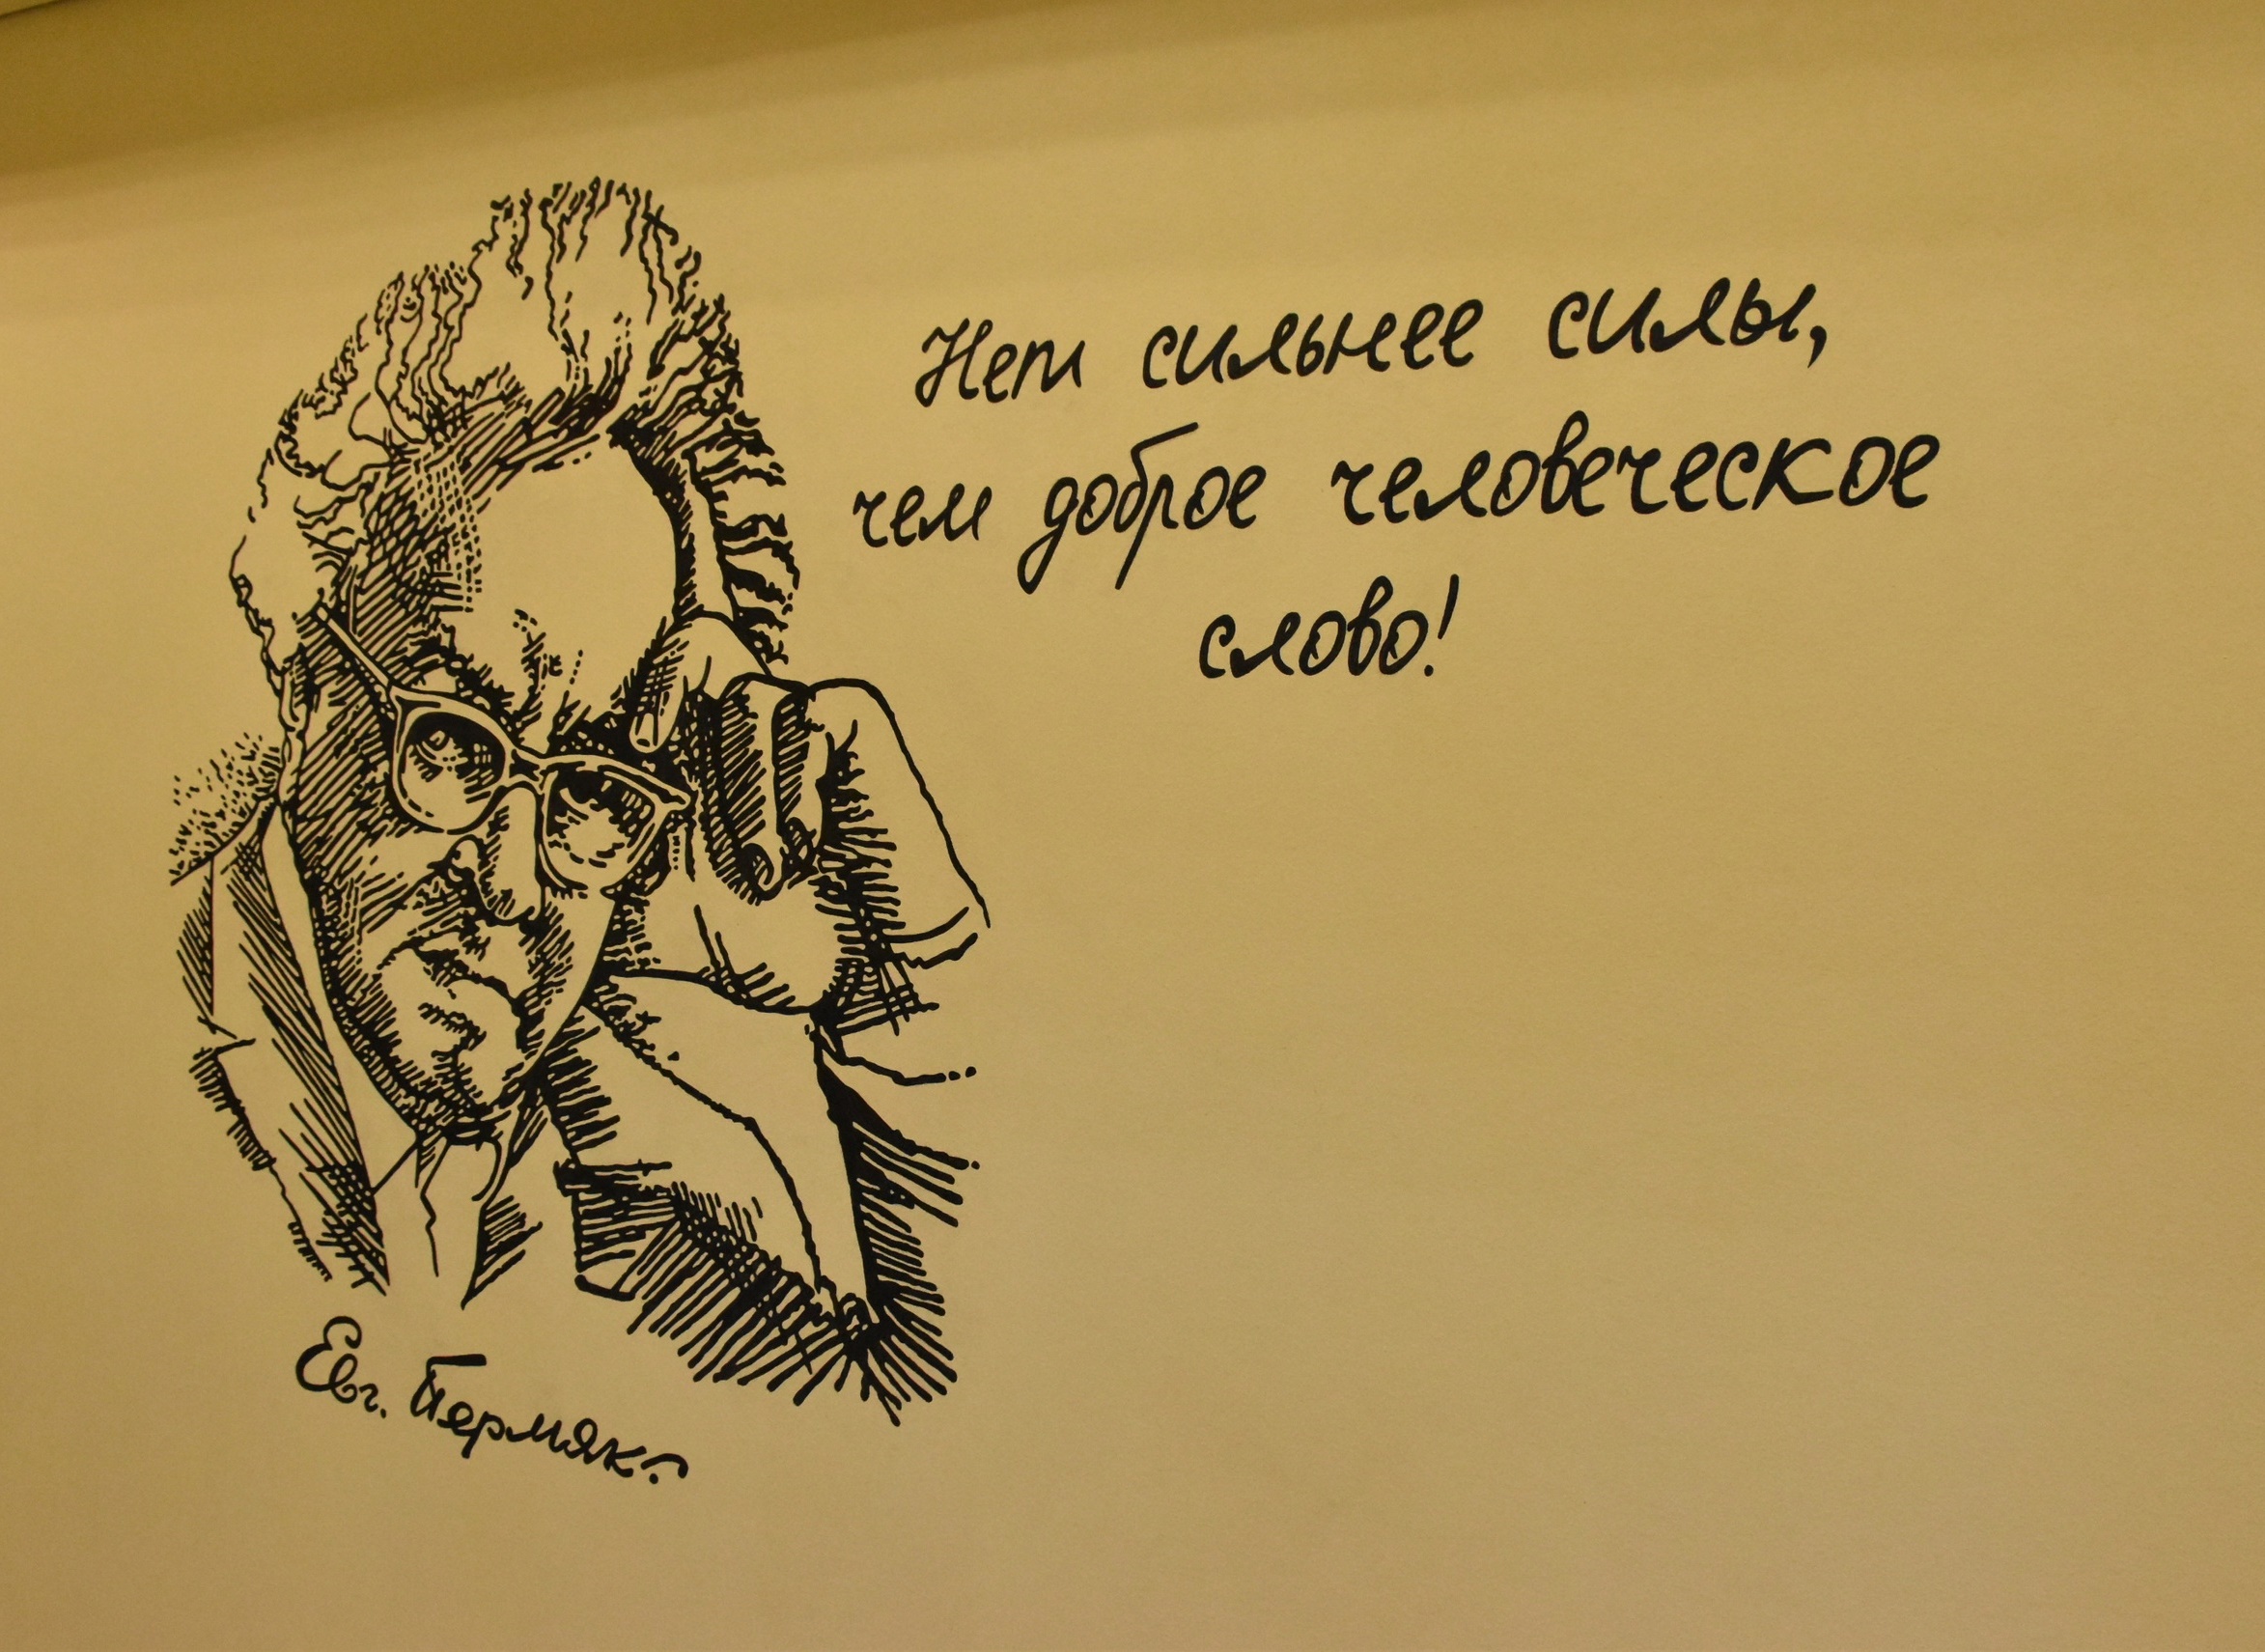 Нет сильнее силы,
чем доброе человеческое
слово!
Евг. Пермяк